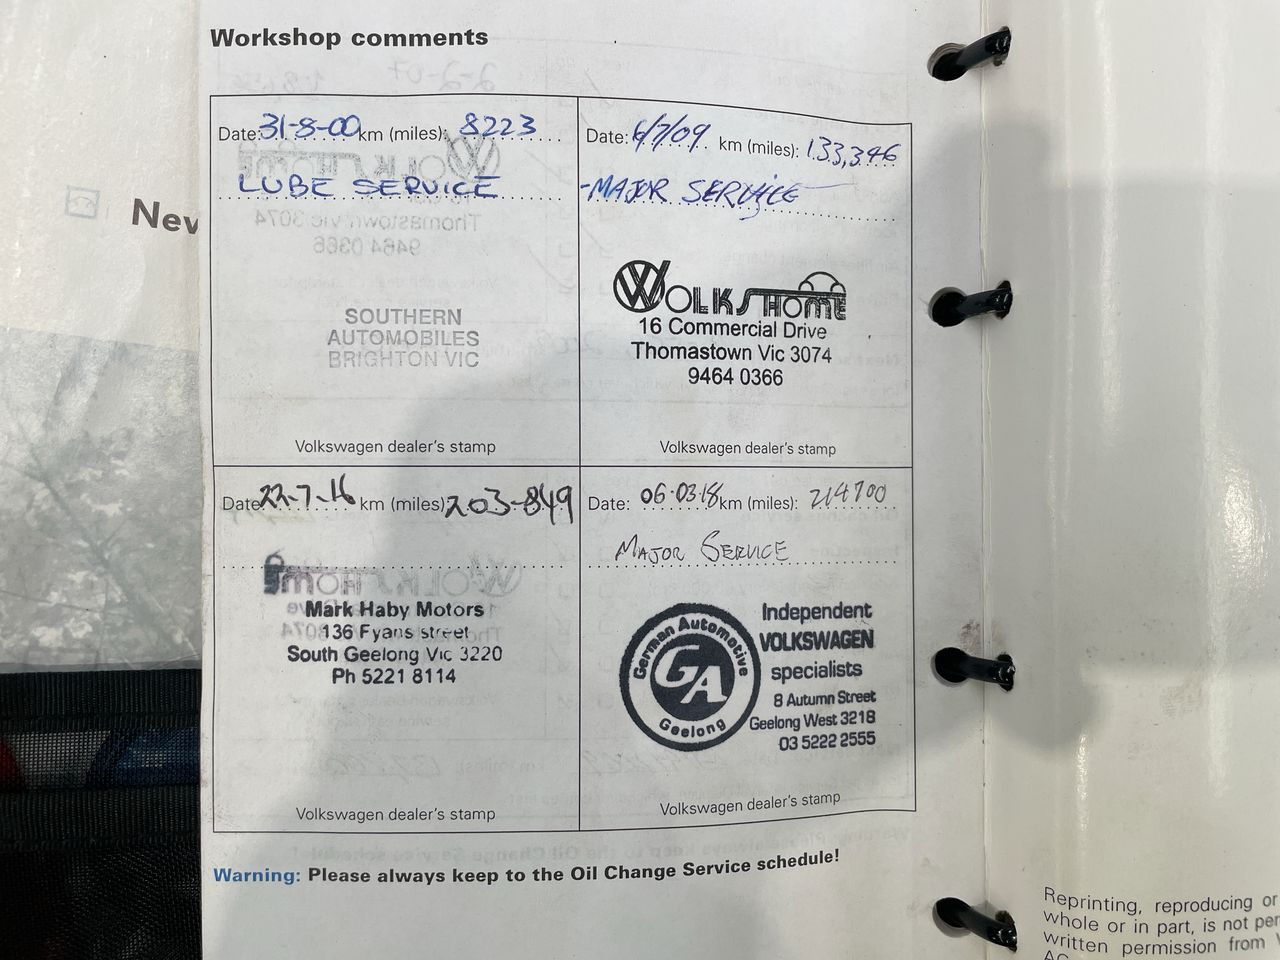 Workshop comments
Date: 31-8-00 km (miles): 8223
LUBE SERVICE
SOUTHERN
AUTOMOBILES
BRIGHTON VIC
Volkswagen dealer's stamp
Date: 6/7/09 km (miles): 133,346
-MAJOR SERVICE
VOLKSHOME
16 Commercial Drive
Thomastown Vic 3074
9464 0366
Volkswagen dealer's stamp
Date 22-7-16 km (miles) 203-849
Mark Haby Motors
136 Fyans street
South Geelong Vic 3220
Ph 5221 8114
Volkswagen dealer's stamp
Date: 06.03.18 km (miles): 214700
MAJOR SERVICE
German Automotive
GA
Geelong
Independent
VOLKSWAGEN
specialists
8 Autumn Street
Geelong West 3218
03 5222 2555
Volkswagen dealer's stamp
Warning: Please always keep to the Oil Change Service schedule!
Reprinting, reproducing or
whole or in part, is not per
written permission from V
AG